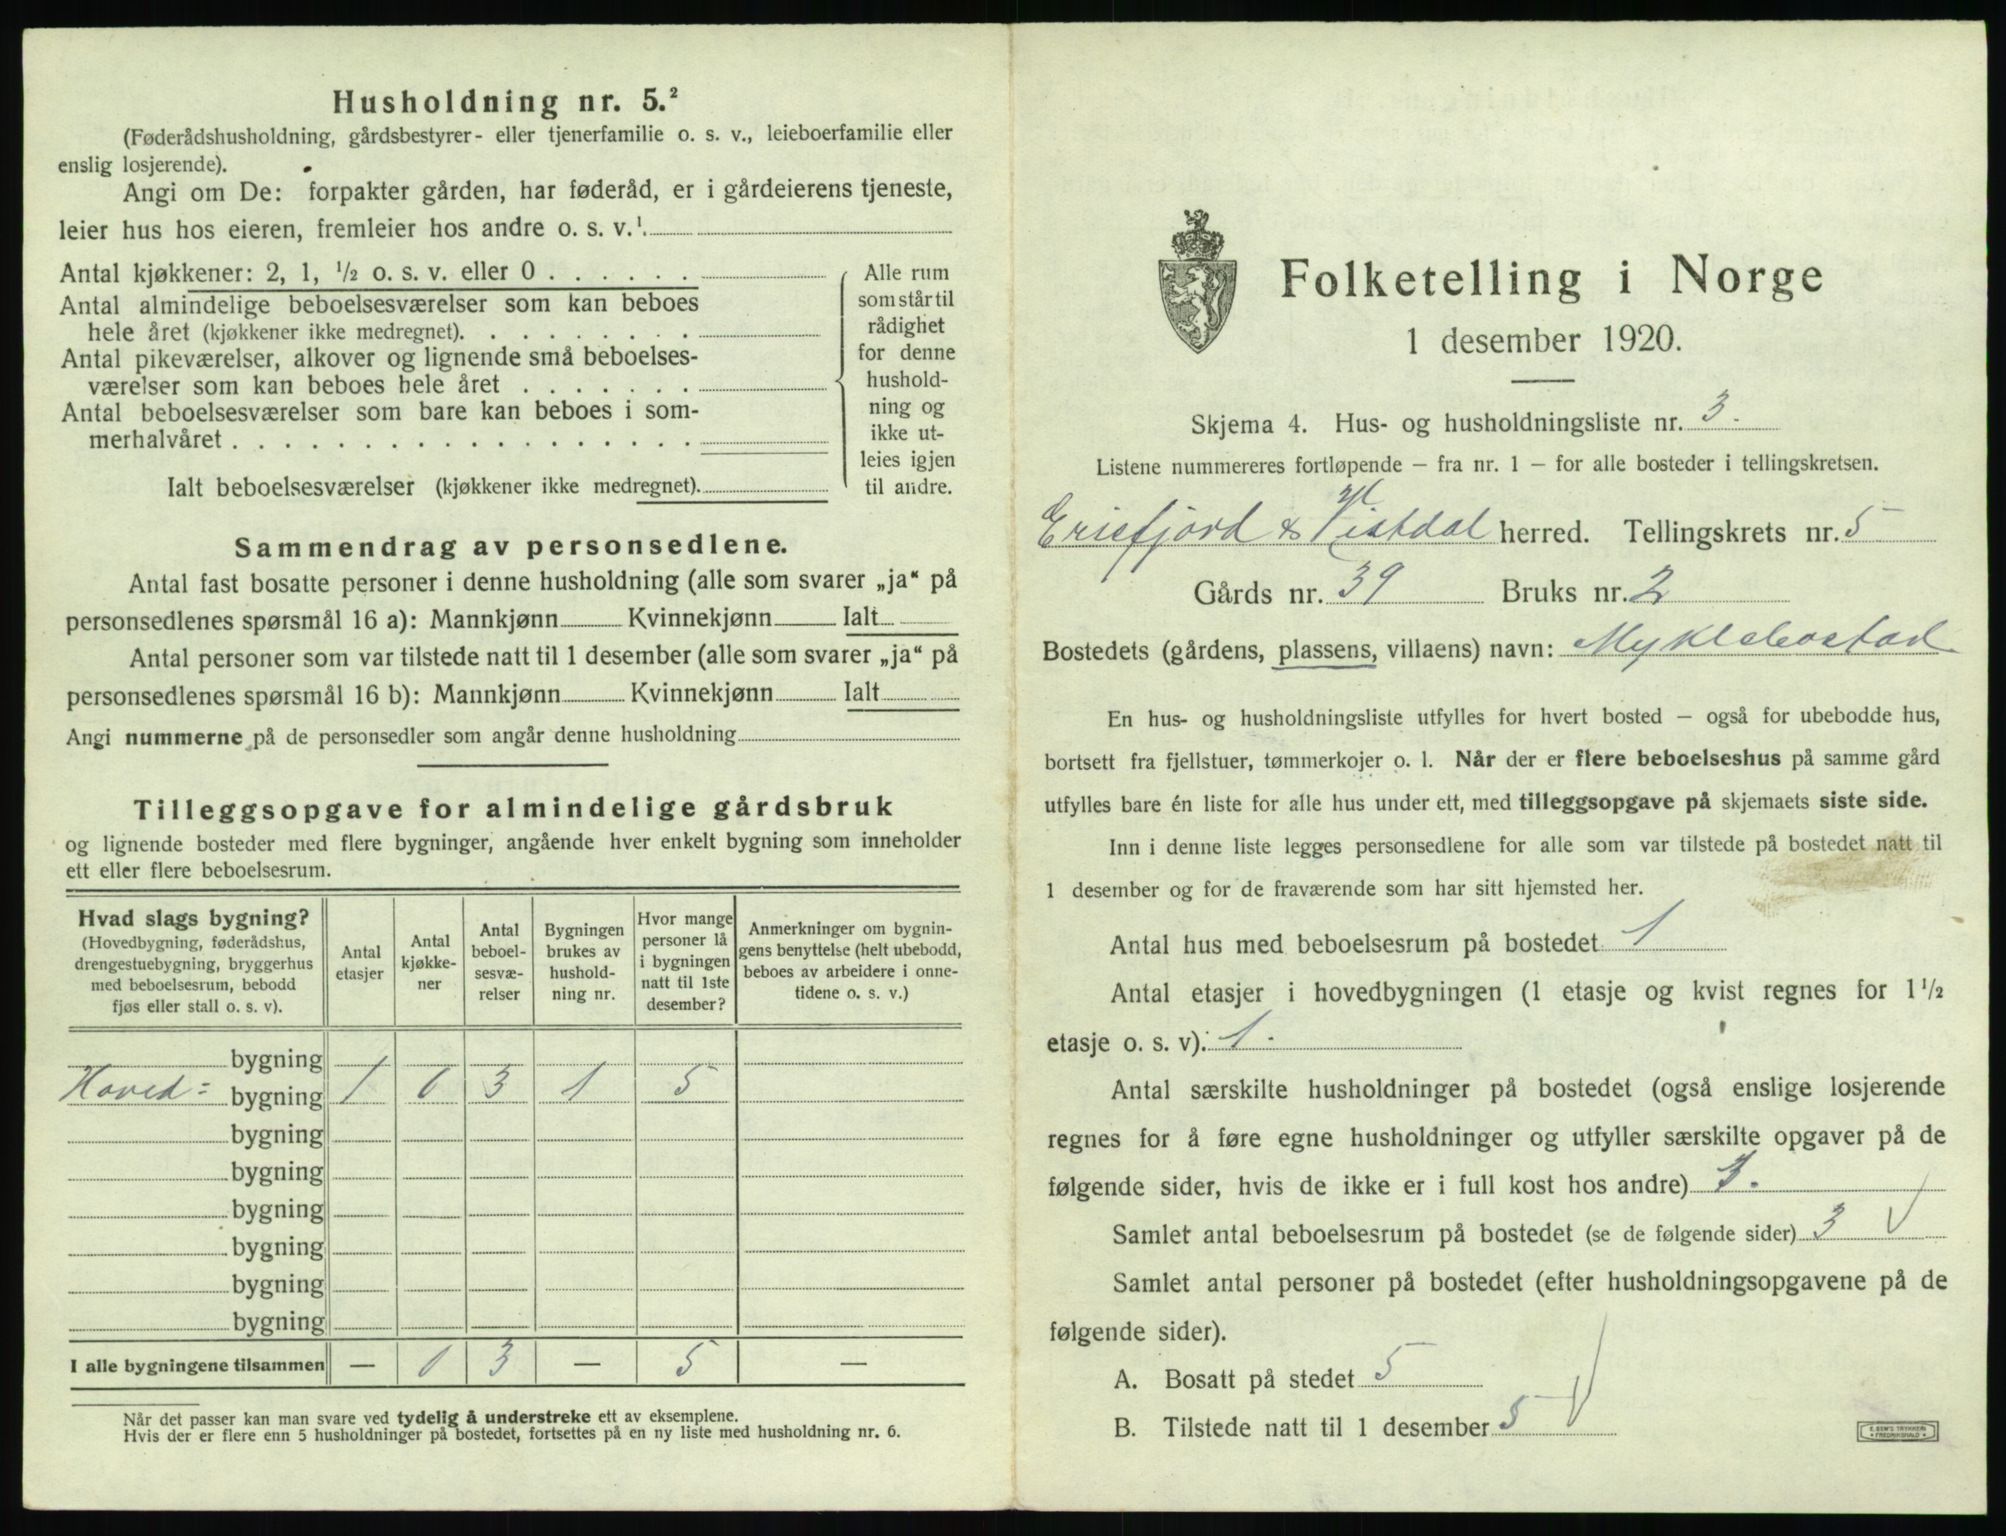 Husholdning nr. 5.²
(Føderådshusholdning, gårdsbestyrer- eller tjenerfamilie o. s. v., leieboerfamilie eller
enslig losjerende).
Angi om De: forpakter gården, har føderåd, er i gårdeierens tjeneste,
leier hus hos eieren, fremleier hos andre o. s. v.¹
Antal kjøkkener: 2, 1, ½ o. s. v. eller 0 . . . . . .
Antal almindelige beboelsesværelser som kan beboes
hele året (kjøkkener ikke medregnet). . . . . . . . .
Antal pikeværelser, alkover og lignende små beboelses-
værelser som kan beboes hele året . . . . . . .
Antal beboelsesværelser som bare kan beboes i som-
merhalvåret . . . . . . . . . . . . . . . . . .
Ialt beboelsesværelser (kjøkkener ikke medregnet).
Alle rum
som står til
rådighet
for denne
hushold-
ning og
ikke ut-
leies igjen
til andre.
Sammendrag av personsedlene.
Antal fast bosatte personer i denne husholdning (alle som svarer „ja“ på
personsedlenes spørsmål 16 a): Mannkjønn Kvinnekjønn Ialt
Antal personer som var tilstede natt til 1 desember (alle som svarer „ja“ på
personsedlenes spørsmål 16 b): Mannkjønn Kvinnekjønn Ialt
Angi nummerne på de personsedler som angår denne husholdning
Tilleggsopgave for almindelige gårdsbruk
og lignende bosteder med flere bygninger, angående hver enkelt bygning som inneholder
ett eller flere beboelsesrum.
Hvad slags bygning?
(Hovedbygning, føderådshus,
drengestuebygning, bryggerhus
med beboelsesrum, bebodd
fjøs eller stall o. s. v).
Antal
etasjer
Antal
kjøkke-
ner
Antal
beboel-
sesvæ-
relser
Bygningen
brukes av
hushold-
ning nr.
Hvor mange
personer lå
i bygningen
natt til 1ste
desember?
Anmerkninger om bygnin-
gens benyttelse (helt ubebodd,
beboes av arbeidere i onne-
tidene o. s. v.)
bygning
Hoved= bygning 1 0 3 1 5
bygning
bygning
bygning
bygning
bygning
bygning
I alle bygningene tilsammen — 0 3 — 5 —
Når det passer kan man svare ved tydelig å understreke ett av eksemplene.
Hvis der er flere enn 5 husholdninger på bostedet, fortsettes på en ny liste med husholdning nr. 6.
Folketelling i Norge
1 desember 1920.
Skjema 4. Hus- og husholdningsliste nr. 3.
Listene nummereres fortløpende — fra nr. 1 — for alle bosteder i tellingskretsen.
Erisfjord & Vistdal herred. Tellingskrets nr. 5
Gårds nr. 39 Bruks nr. 2
Bostedets (gårdens, plassens, villaens) navn: Myklebostad
En hus- og husholdningsliste utfylles for hvert bosted — også for ubebodde hus,
bortsett fra fjellstuer, tømmerkojer o. l. Når der er flere beboelseshus på samme gård
utfylles bare én liste for alle hus under ett, med tilleggsopgave på skjemaets siste side.
Inn i denne liste legges personsedlene for alle som var tilstede på bostedet natt til
1 desember og for de fraværende som har sitt hjemsted her.
Antal hus med beboelsesrum på bostedet 1
Antal etasjer i hovedbygningen (1 etasje og kvist regnes for 1½
etasje o. s. v): 1.
Antal særskilte husholdninger på bostedet (også enslige losjerende
regnes for å føre egne husholdninger og utfyller særskilte opgaver på de
følgende sider, hvis de ikke er i full kost hos andre)
Samlet antal beboelsesrum på bostedet (se de følgende sider) 3
Samlet antal personer på bostedet (efter husholdningsopgavene på de
følgende sider).
A. Bosatt på stedet 5
B. Tilstede natt til 1 desember 5
E. SEM'S TRYKKERI
FREDRIKSHALD